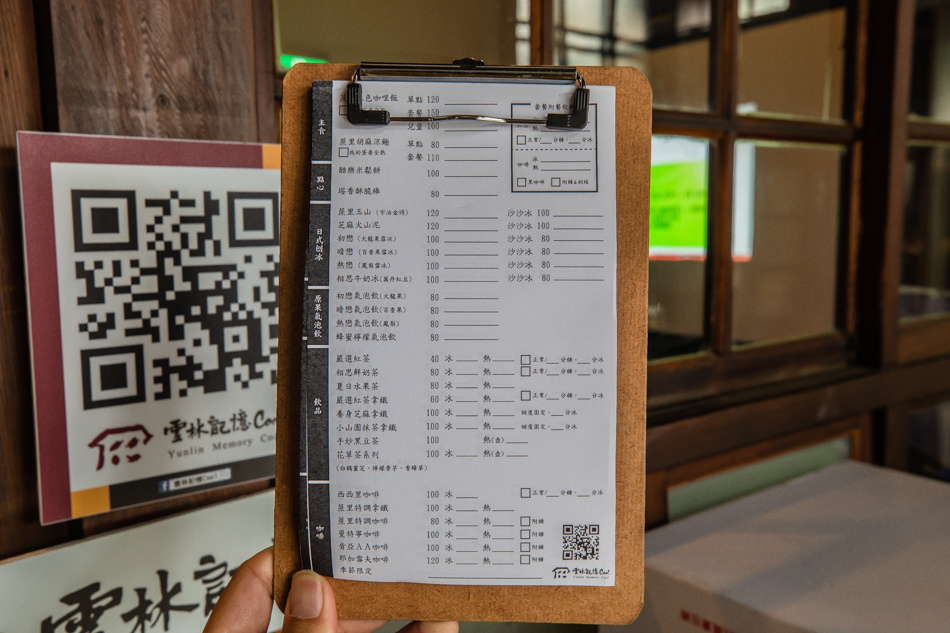 主食
色咖哩飯 單點 120
套餐 150
兒童 100
蔗里胡麻涼麵 單點 80
套餐 110
點心
酷樂米鬆餅 100
塔香酥脆棒 80
套餐附餐飲
正常/__分糖·__分冰
咖啡 冰
熱
黑咖啡 附糖&奶球
日式刨冰
蔗里玉山 (宇治金時) 120 沙沙冰 100
芝麻火山泥 120 沙沙冰 100
初戀 (火龍果雪冰) 100 沙沙冰 80
暗戀 (百香果雪冰) 100 沙沙冰 80
熱戀 (鳳梨雪冰) 100 沙沙冰 80
相思牛奶冰(萬丹紅豆) 100 沙沙冰 80
原果氣泡飲
初戀氣泡飲(火龍果) 80
暗戀氣泡飲(百香果) 80
熱戀氣泡飲(鳳梨) 80
蜂蜜檸檬氣泡飲 80
飲品
嚴選紅茶 40 冰 熱 正常/__分糖·__分冰
相思鮮奶茶 80 冰 熱 正常/__分糖·__分冰
夏日水果茶 80 冰 熱
嚴選紅茶拿鐵 60 冰 熱 正常/__分糖·__分冰
養身芝麻拿鐵 100 冰 熱 甜度固定·__分冰
小山園抹茶拿鐵 100 冰 熱 甜度固定·__分冰
手炒黑豆茶 100 熱(壺)
花草茶系列 100 冰 熱(壺)
咖啡
西西里咖啡 100 冰 正常/__分糖·__分冰
蔗里特調拿鐵 100 冰 熱
蔗里特調咖啡 80 冰 熱 附糖
曼特寧咖啡 100 冰 熱 附糖
肯亞AA咖啡 100 冰 熱 附糖
耶加雪夫咖啡 120 冰 熱 附糖
季節限定
雲林記憶Cool
Yunlin Memory Cool
雲林記憶Cool
Yunlin Memory Coo
雲林記憶Cool
雲林記